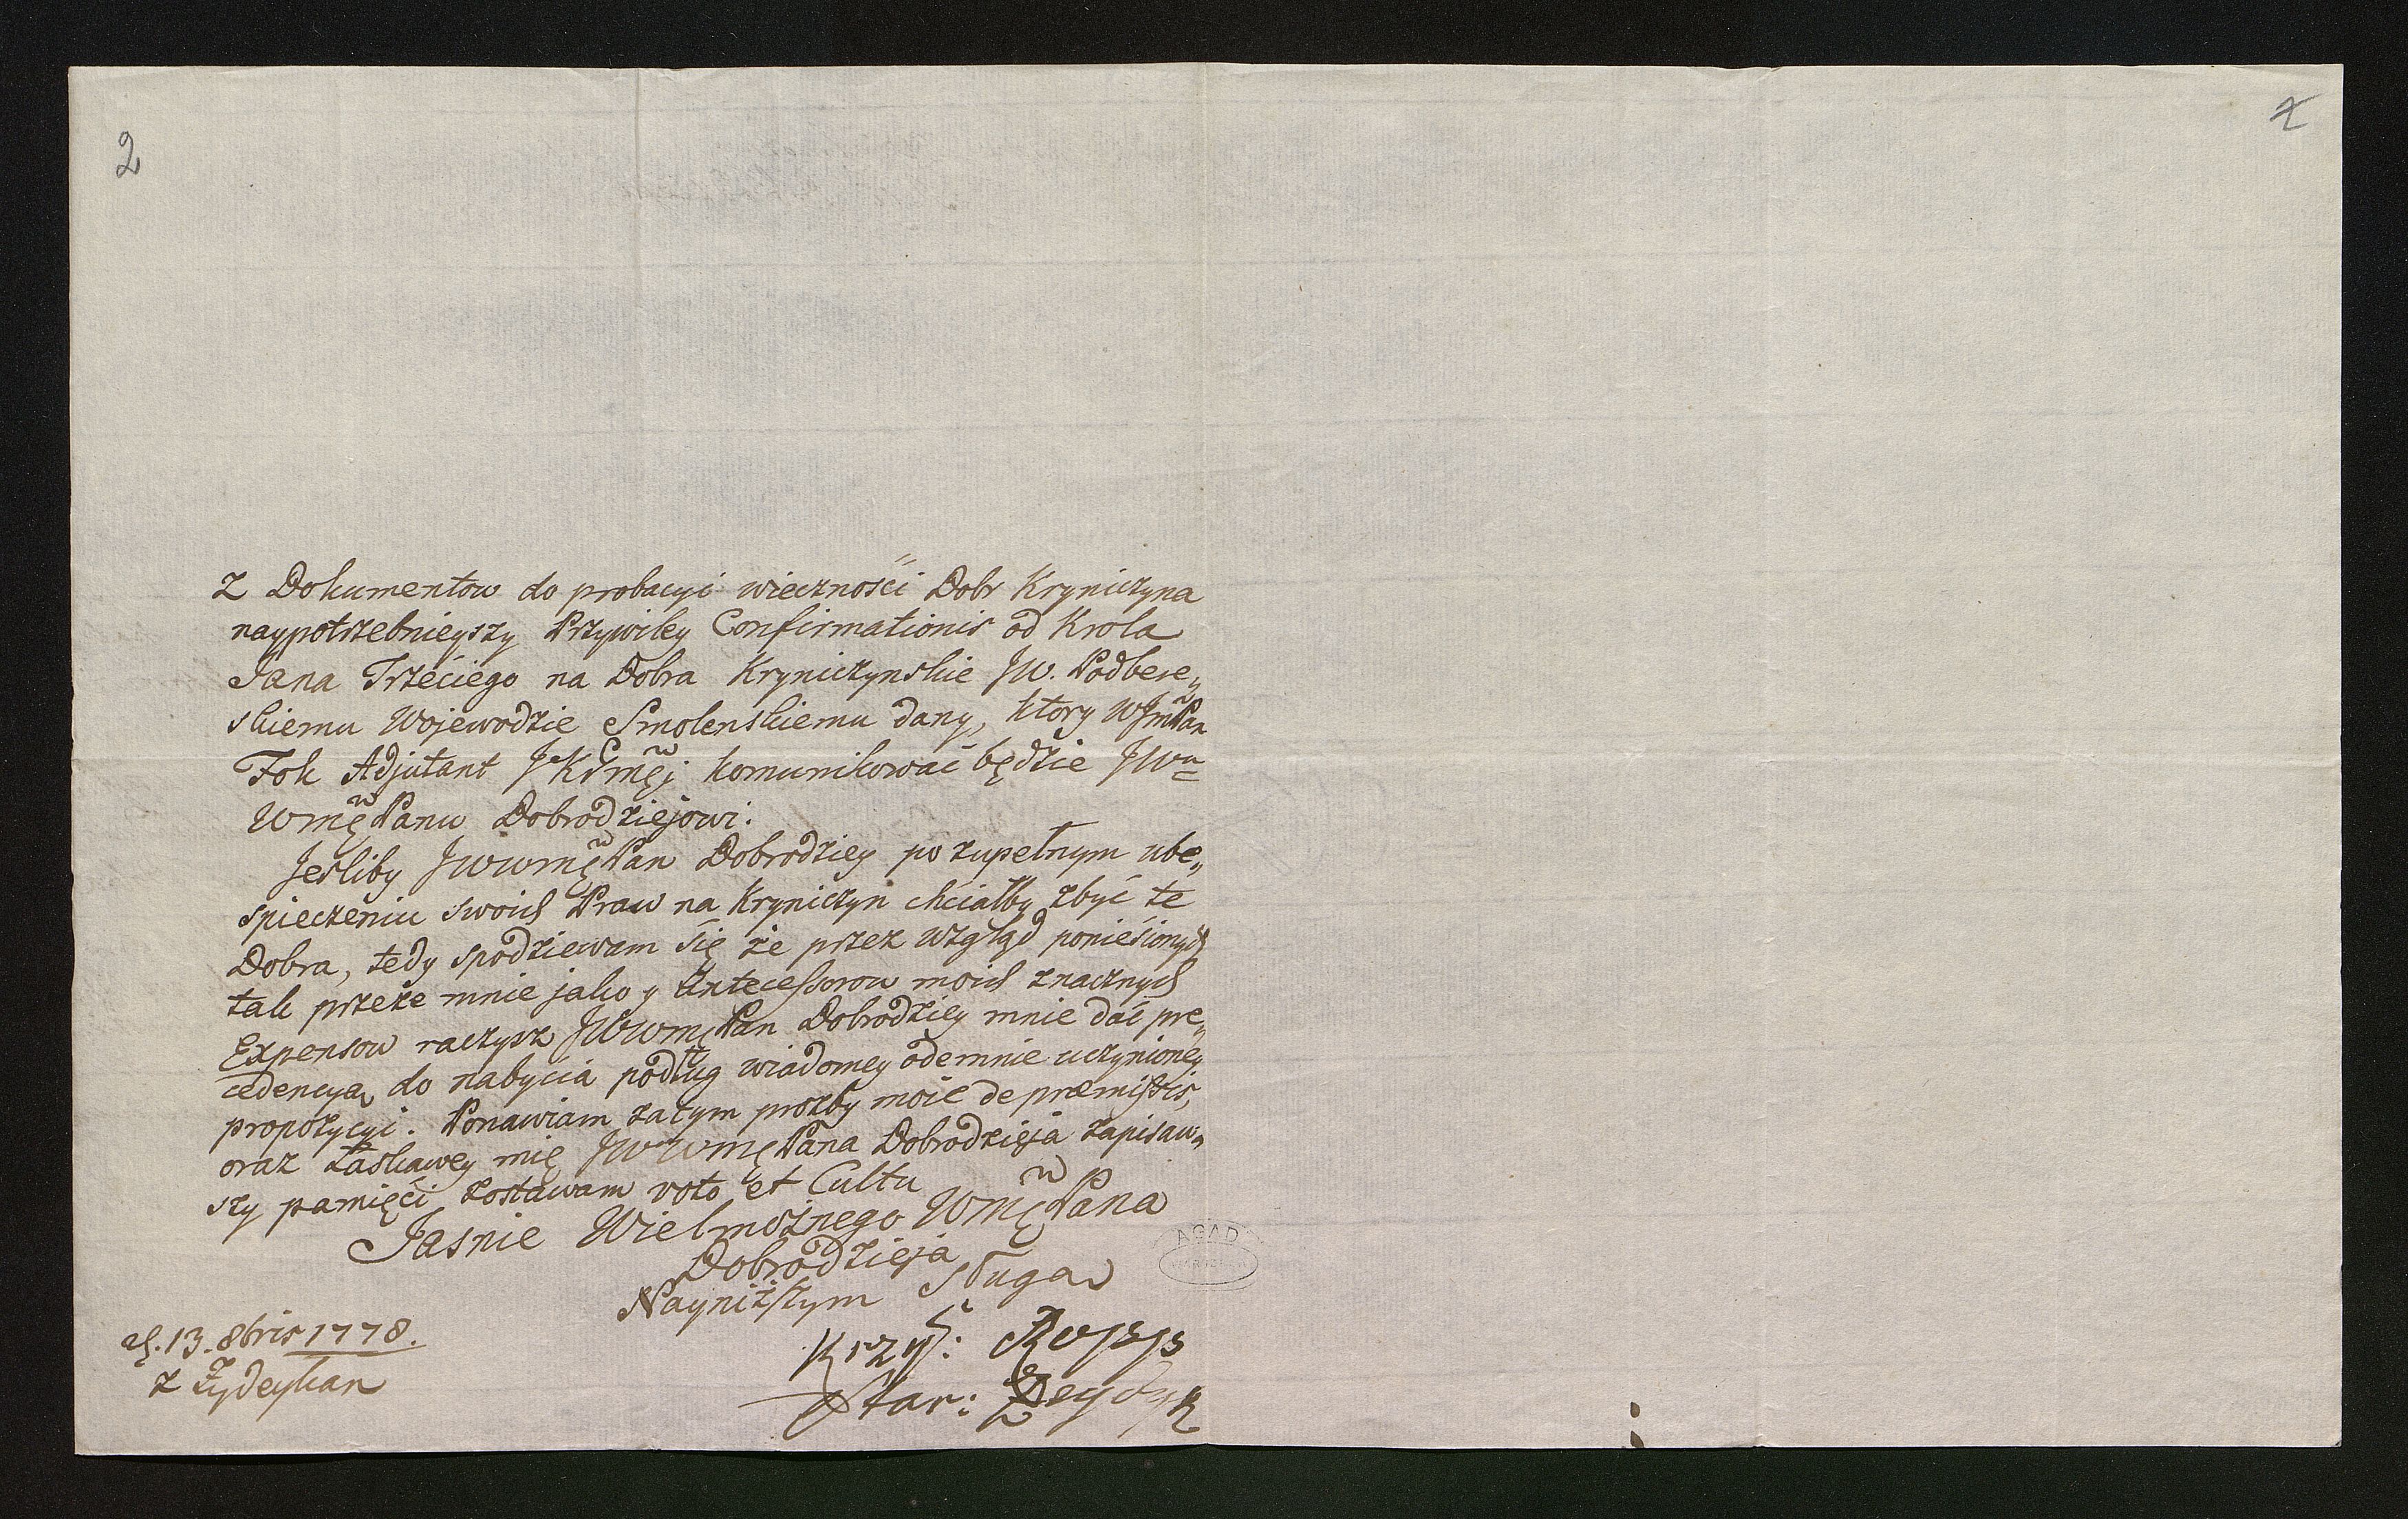 2
Z Dokumentow do probacyi wieczności Dobr Kryniczyna
naypotrzebnieyszy Przywiley Confirmationis od Krola
Jana Trzéciego na Dobra Kryniczynskie JW. Podbere„
skiemu Wojewodzie Smolenskiemu dany, ktory WJm Pan
Fok Adjutant JKrmęj komunikować będzie JWu
Wmę Panu Dobrodziejowi.
Jesliby JWWmę Pan Dobrodziey po zupełnym ube„
spieczeniu swoich Praw na Kryniczyn chciałby zbyć te
Dobra, tedy spodziewam się że przez wzgląd poniesionych
tak przeze mnie jako y Antecessorow moich znacznych
Expensow raczysz JWWmę Pan Dobrodziey mnie dać pre„
cedencyą do nabycia podług wiadomey odemnie uczynioney
propozycyi. Ponawiam zatym prozby moie de præmissis,
oraz Łaskawey mię JWWmę Pana Dobrodzieja zapisaw„
szy pamięci zostawam voto et Cultu
Jasnie Wielmożnego Wmę Pana
Dobrodzieja
Nayniższym Sługa
Krzys: Ropp
Star:
13. 8bris 1778.
z Zydeykan
AGAD